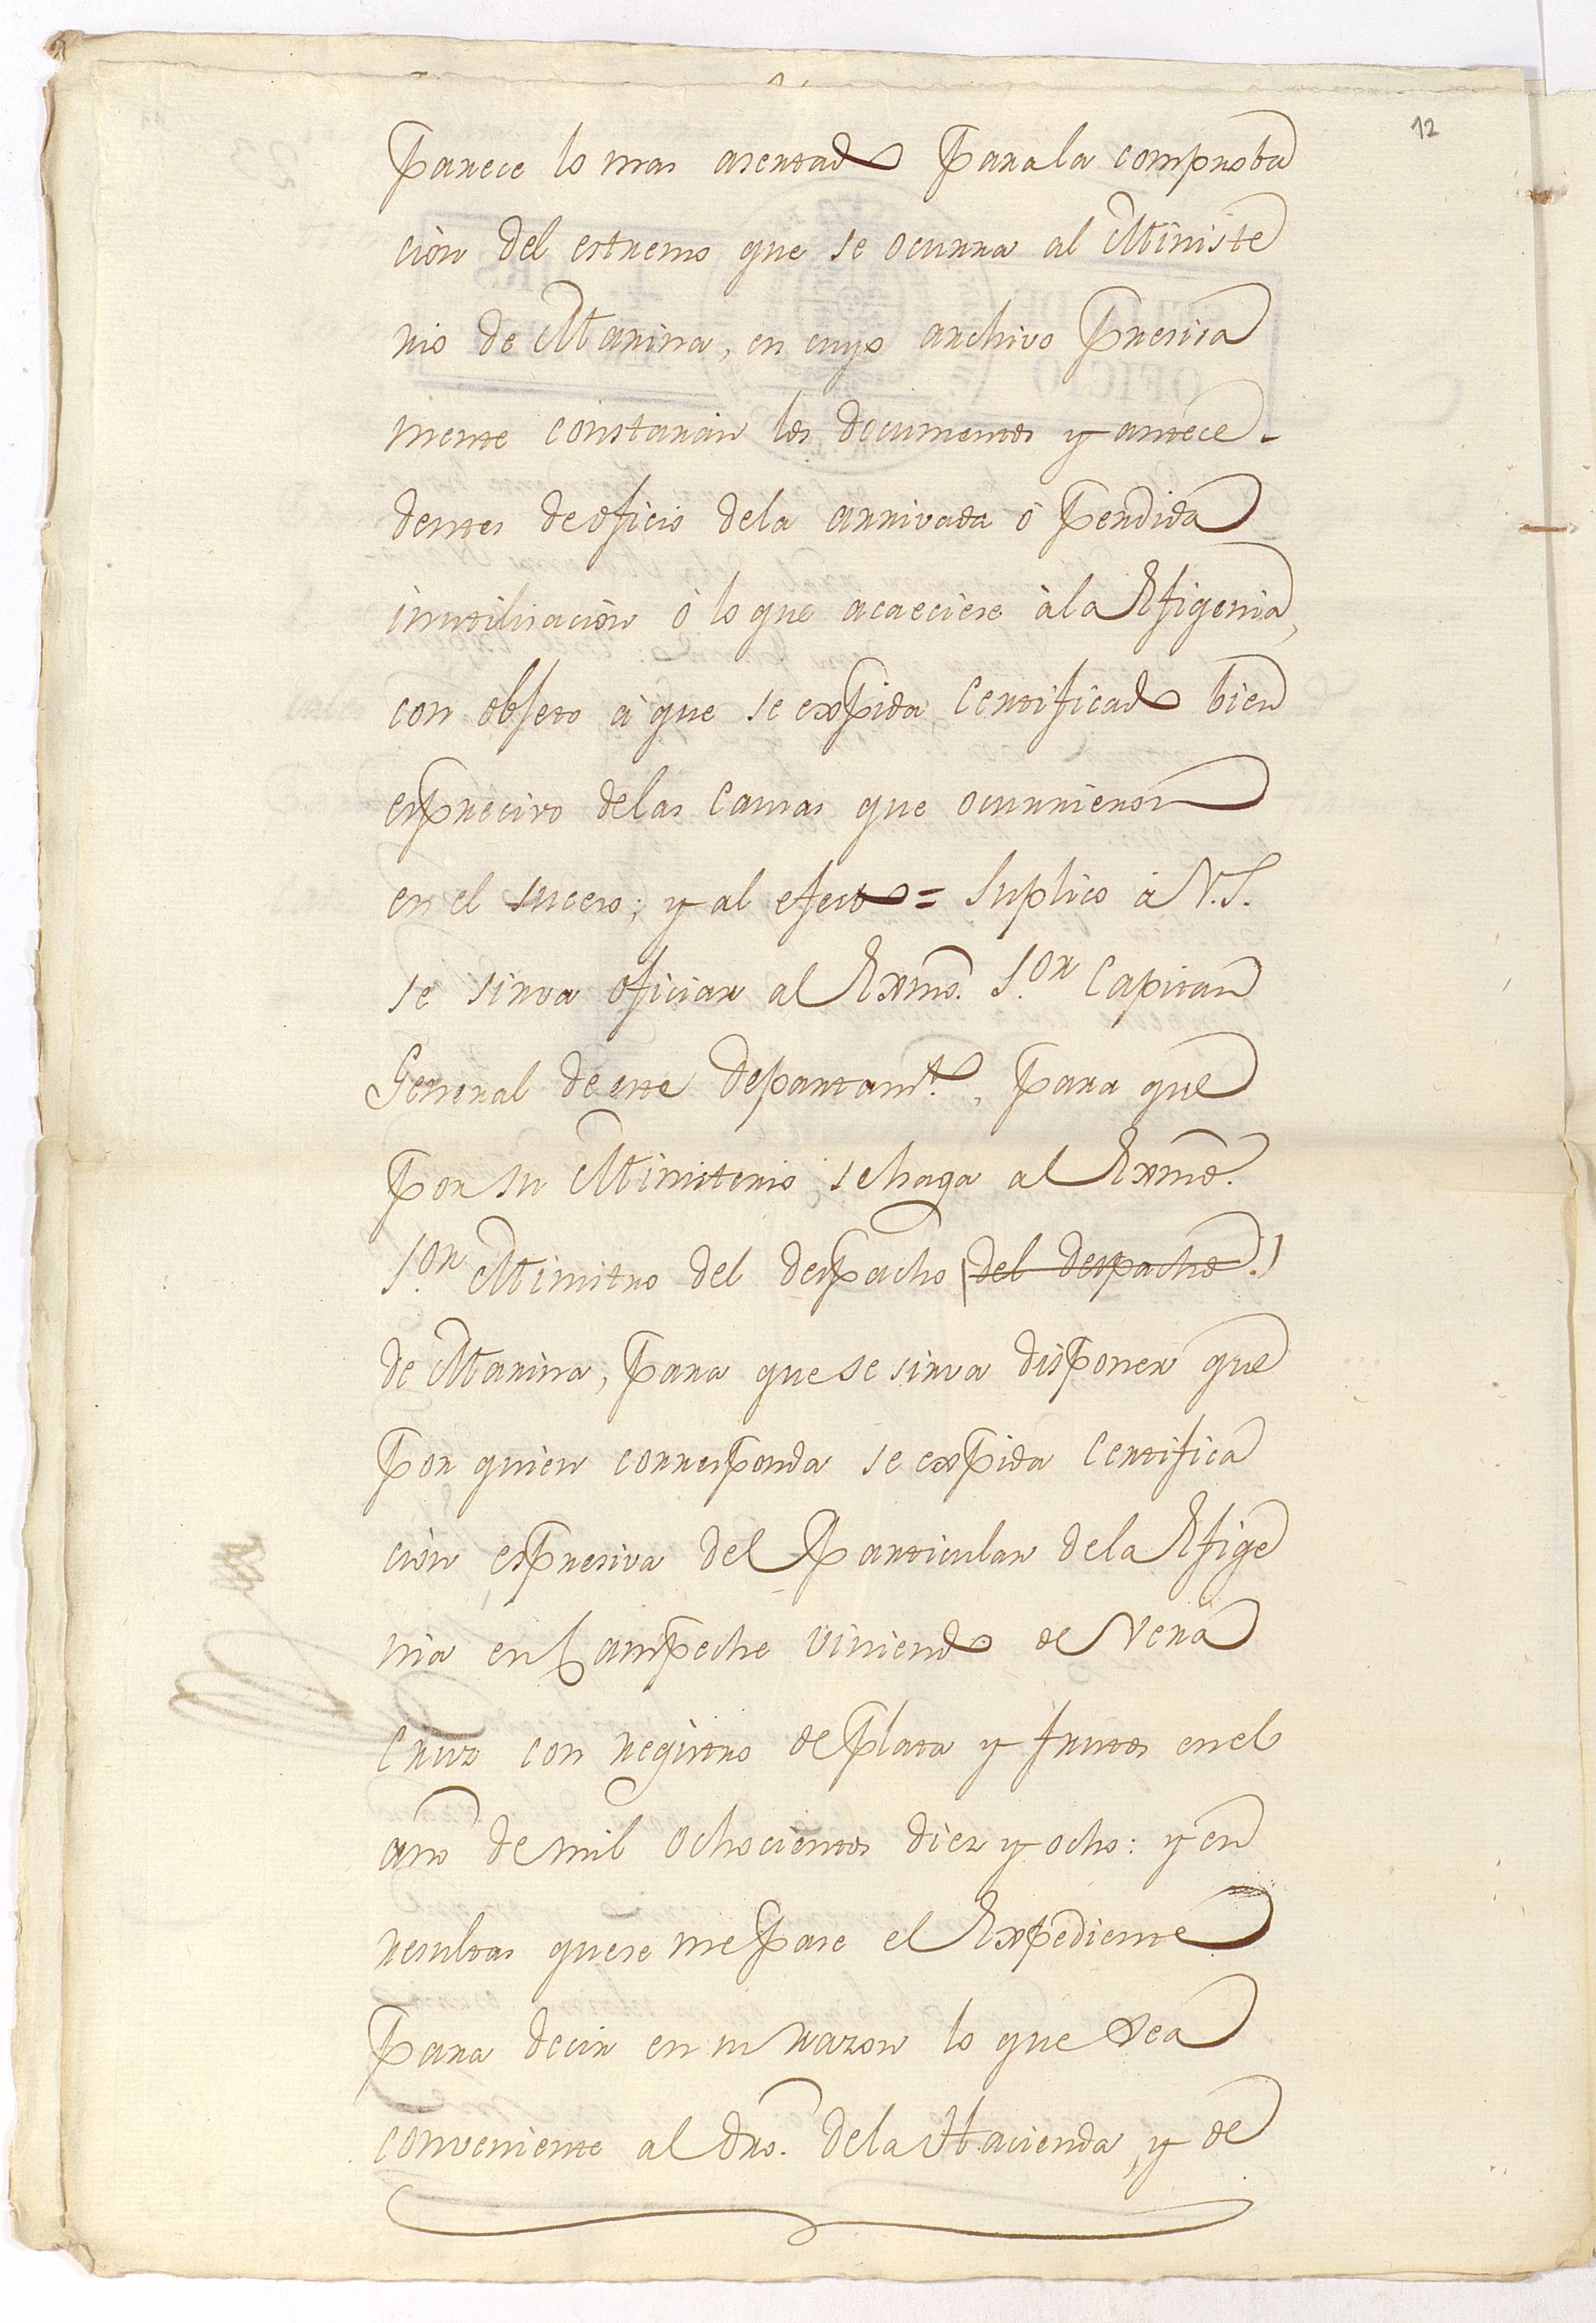 12
parece lo mas asentado para la comproba
cion del estremo que se ocurra al Ministe
rio de Marina, en cuyo archivo presisa
mente constaràn los documentos y antece-
dentes de oficio dela arrivada ò perdida
inutilisaciòn ò lo que acaeciese à la Efigenia,
con objeto à que se expida Certificado bien
esprecivo delas Causas que ocurrieron
en el suceso; y al efecto = Suplico à V.S.
se sirva oficiar al Exmo. S.or Capitan
General de este Departamto., para que
por su Ministerio se haga al Exmo.
S.or Ministro del despacho (del despacho.)
de Marina, para que se sirva disponer que
por quien corresponda se expida Certifica
cion espresiva del Particular dela Efige
nia en Campeche viniendo de Vera
Cruz con registro de plata y frutos en el
año de mil ochocientos diez y ocho: y en
resultas que se me pase el Expediente
para decir en su razon lo que sea
conveniente al dro. dela Hacienda, y de